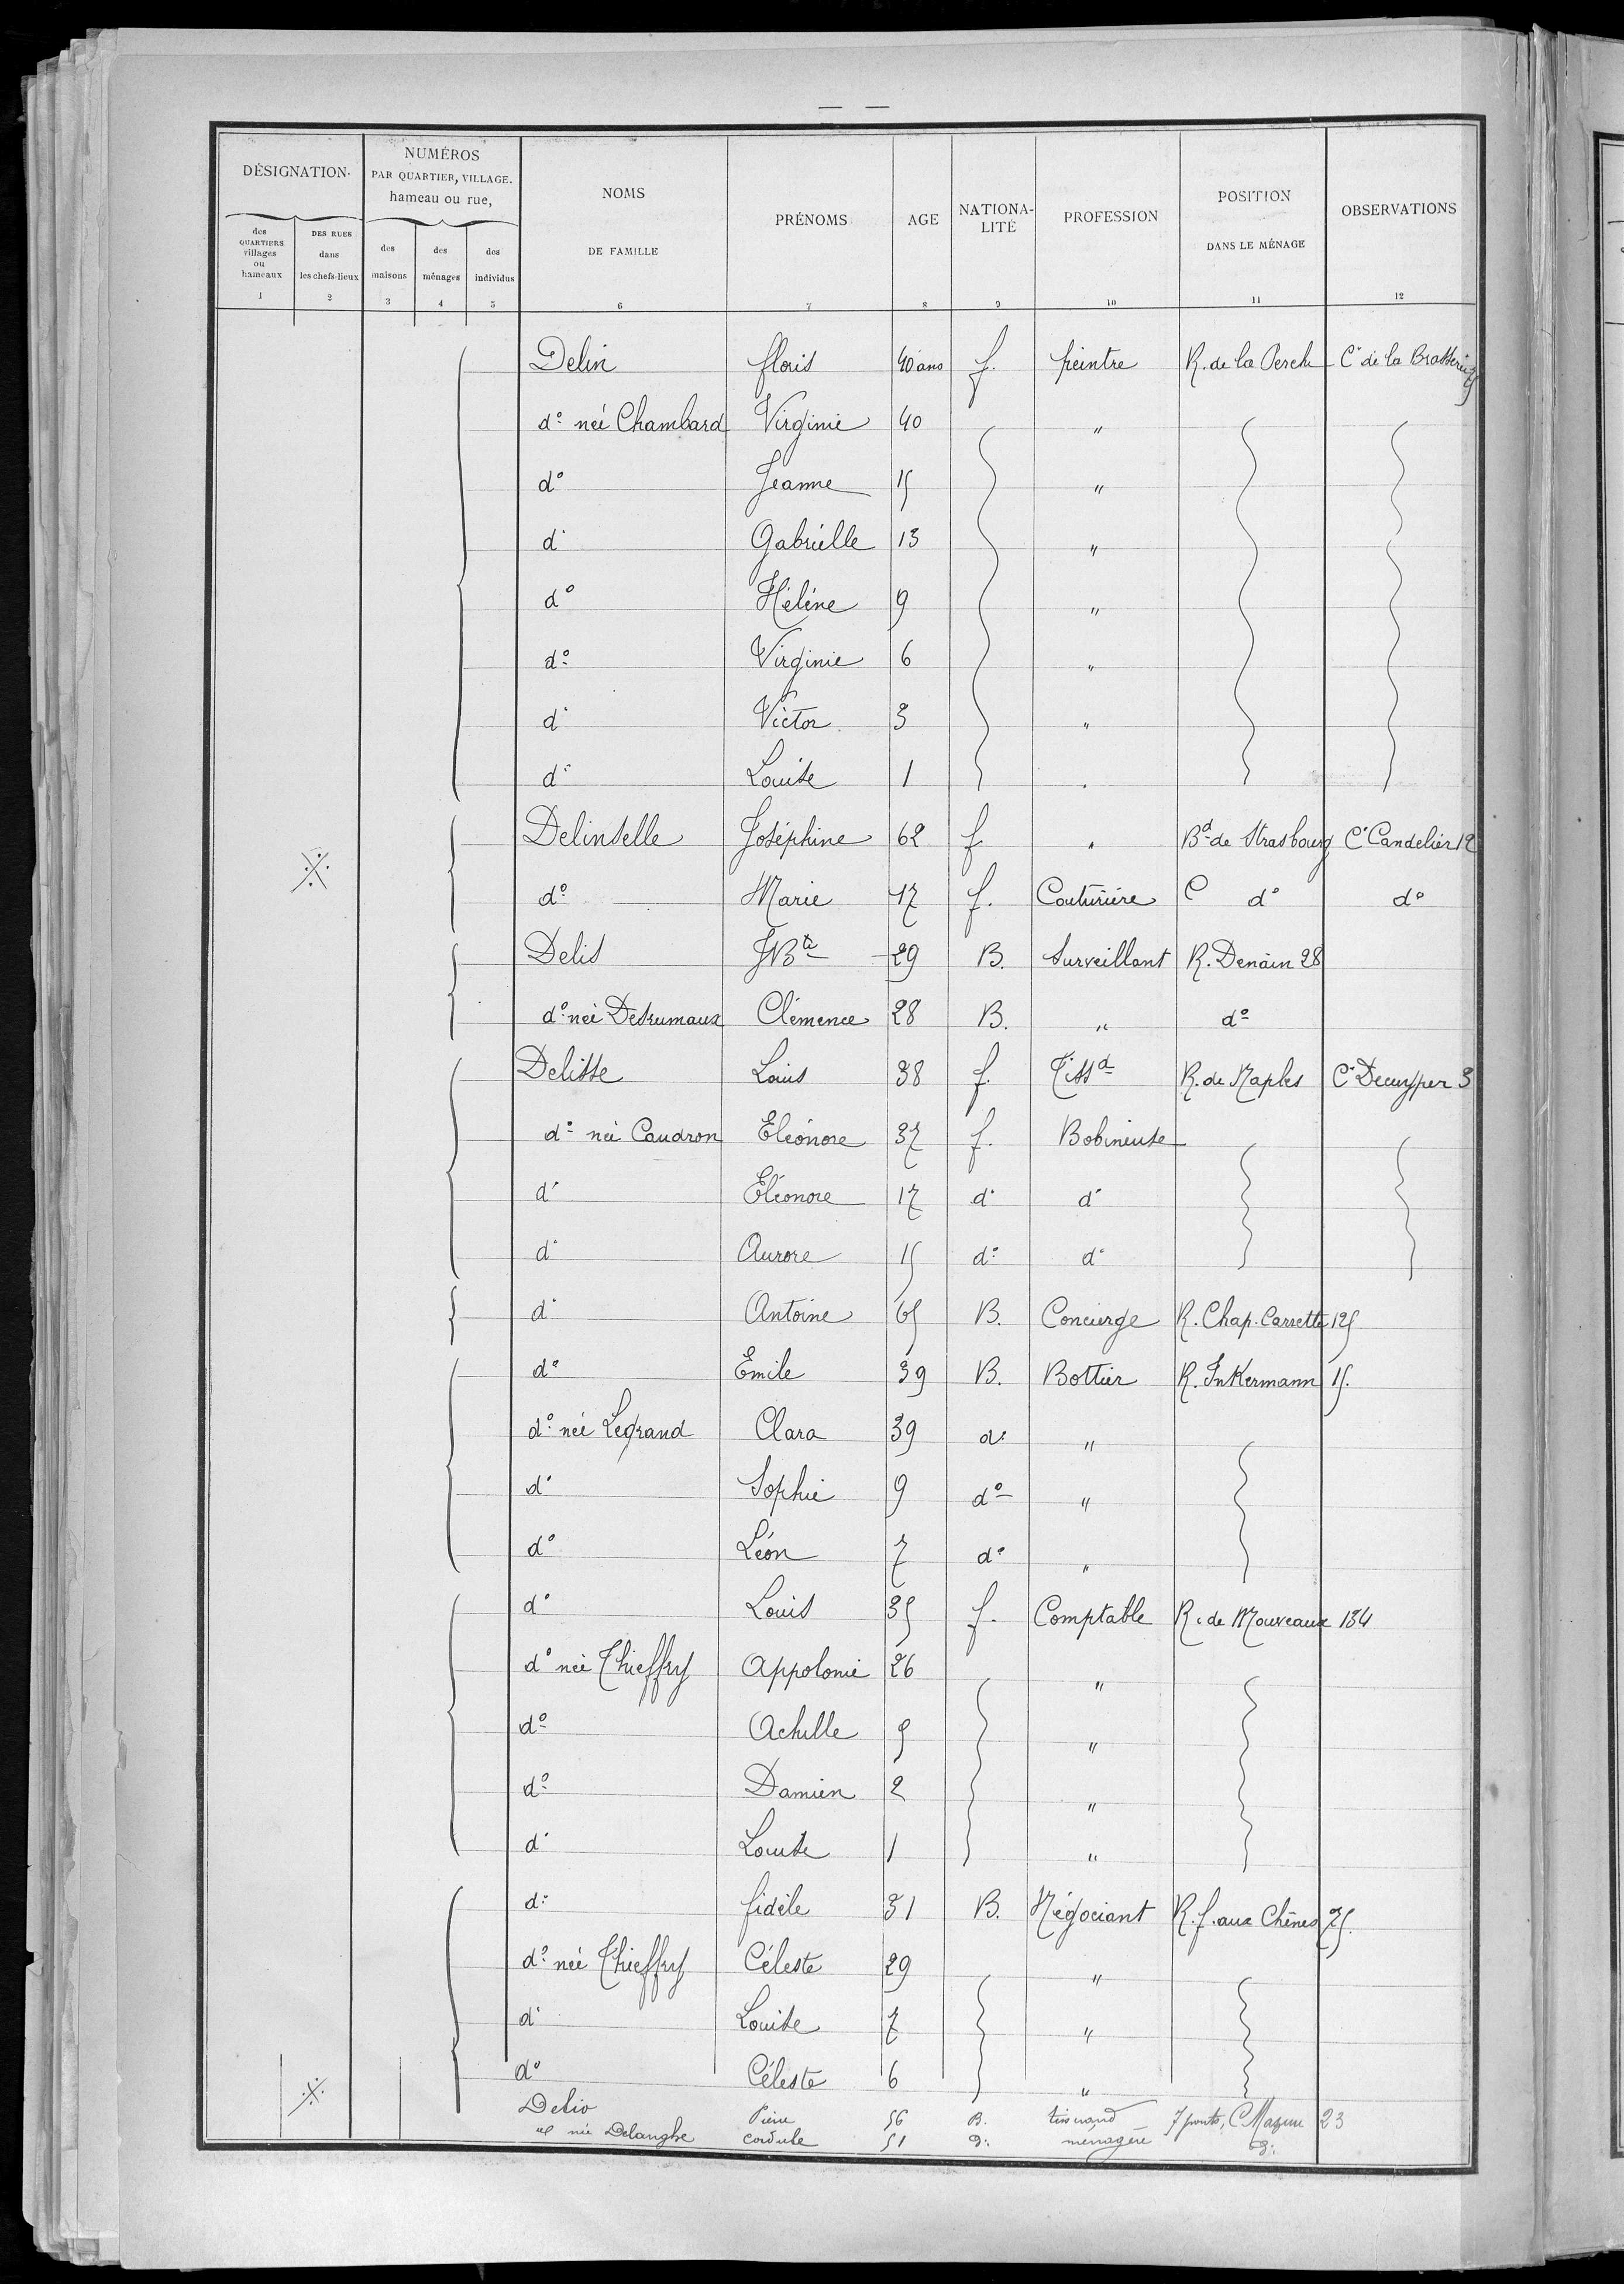 DÉSIGNATION.
des QUARTIERS villages ou hameaux
DES RUES dans les chefs-lieux
NUMÉROS PAR QUARTIER, VILLAGE. hameau ou rue,
des maisons
des ménages
des individus
NOMS DE FAMILLE
PRÉNOMS
AGE
NATIONA-LITÉ
PROFESSION
POSITION DANS LE MÉNAGE
OBSERVATIONS
1 2 3 4 5 6 7 8 9 10 11 12
Delin floris 40 ans f. peintre R. de la Perche Cr de la Brasserie
do née Chambard Virginie 40 "
do Jeanne 15 "
do Gabriélle 13 "
do Hélène 9 "
do Virginie 6 "
do Victor 3 "
do Louise 1 "
Delinselle Joséphine 62 f. " Bd de Strasbourg Cr Candelier 12
do Marie 17 f. Couturière do do
Delis JBte 29 B. Surveillant R. Denain 28
do née Desrumaux Clémence 28 B. " do
Delisse Louis 38 f. Tissd R. de Naples Cr Decuyper 3
do née Caudron Eléonore 37 f. Bobineuse
do Eléonore 17 do do
do Aurore 15 do do
do Antoine 65 B. Concierge R. Chap. Carrette 125
do Emile 39 B. Bottier R. Inkermann 15.
do née Legrand Clara 39 do "
do Sophie 9 do "
do Léon 7 do "
do Louis 35 f. Comptable R. de Mouveaux 134
do née Thieffry Appolonie 26 "
do Achille 5 "
do Damien 2 "
do Louise 1 "
do fidèle 31 B. Négociant R. f. aux Chênes 75.
do née Thieffry Céleste 29 "
do Louise 7 "
do Céleste 6 "
Delio Pierre 56 B. tisserand 7 ponts, C Mazure 23
née Delanghe Cordule 51 do ménagère do